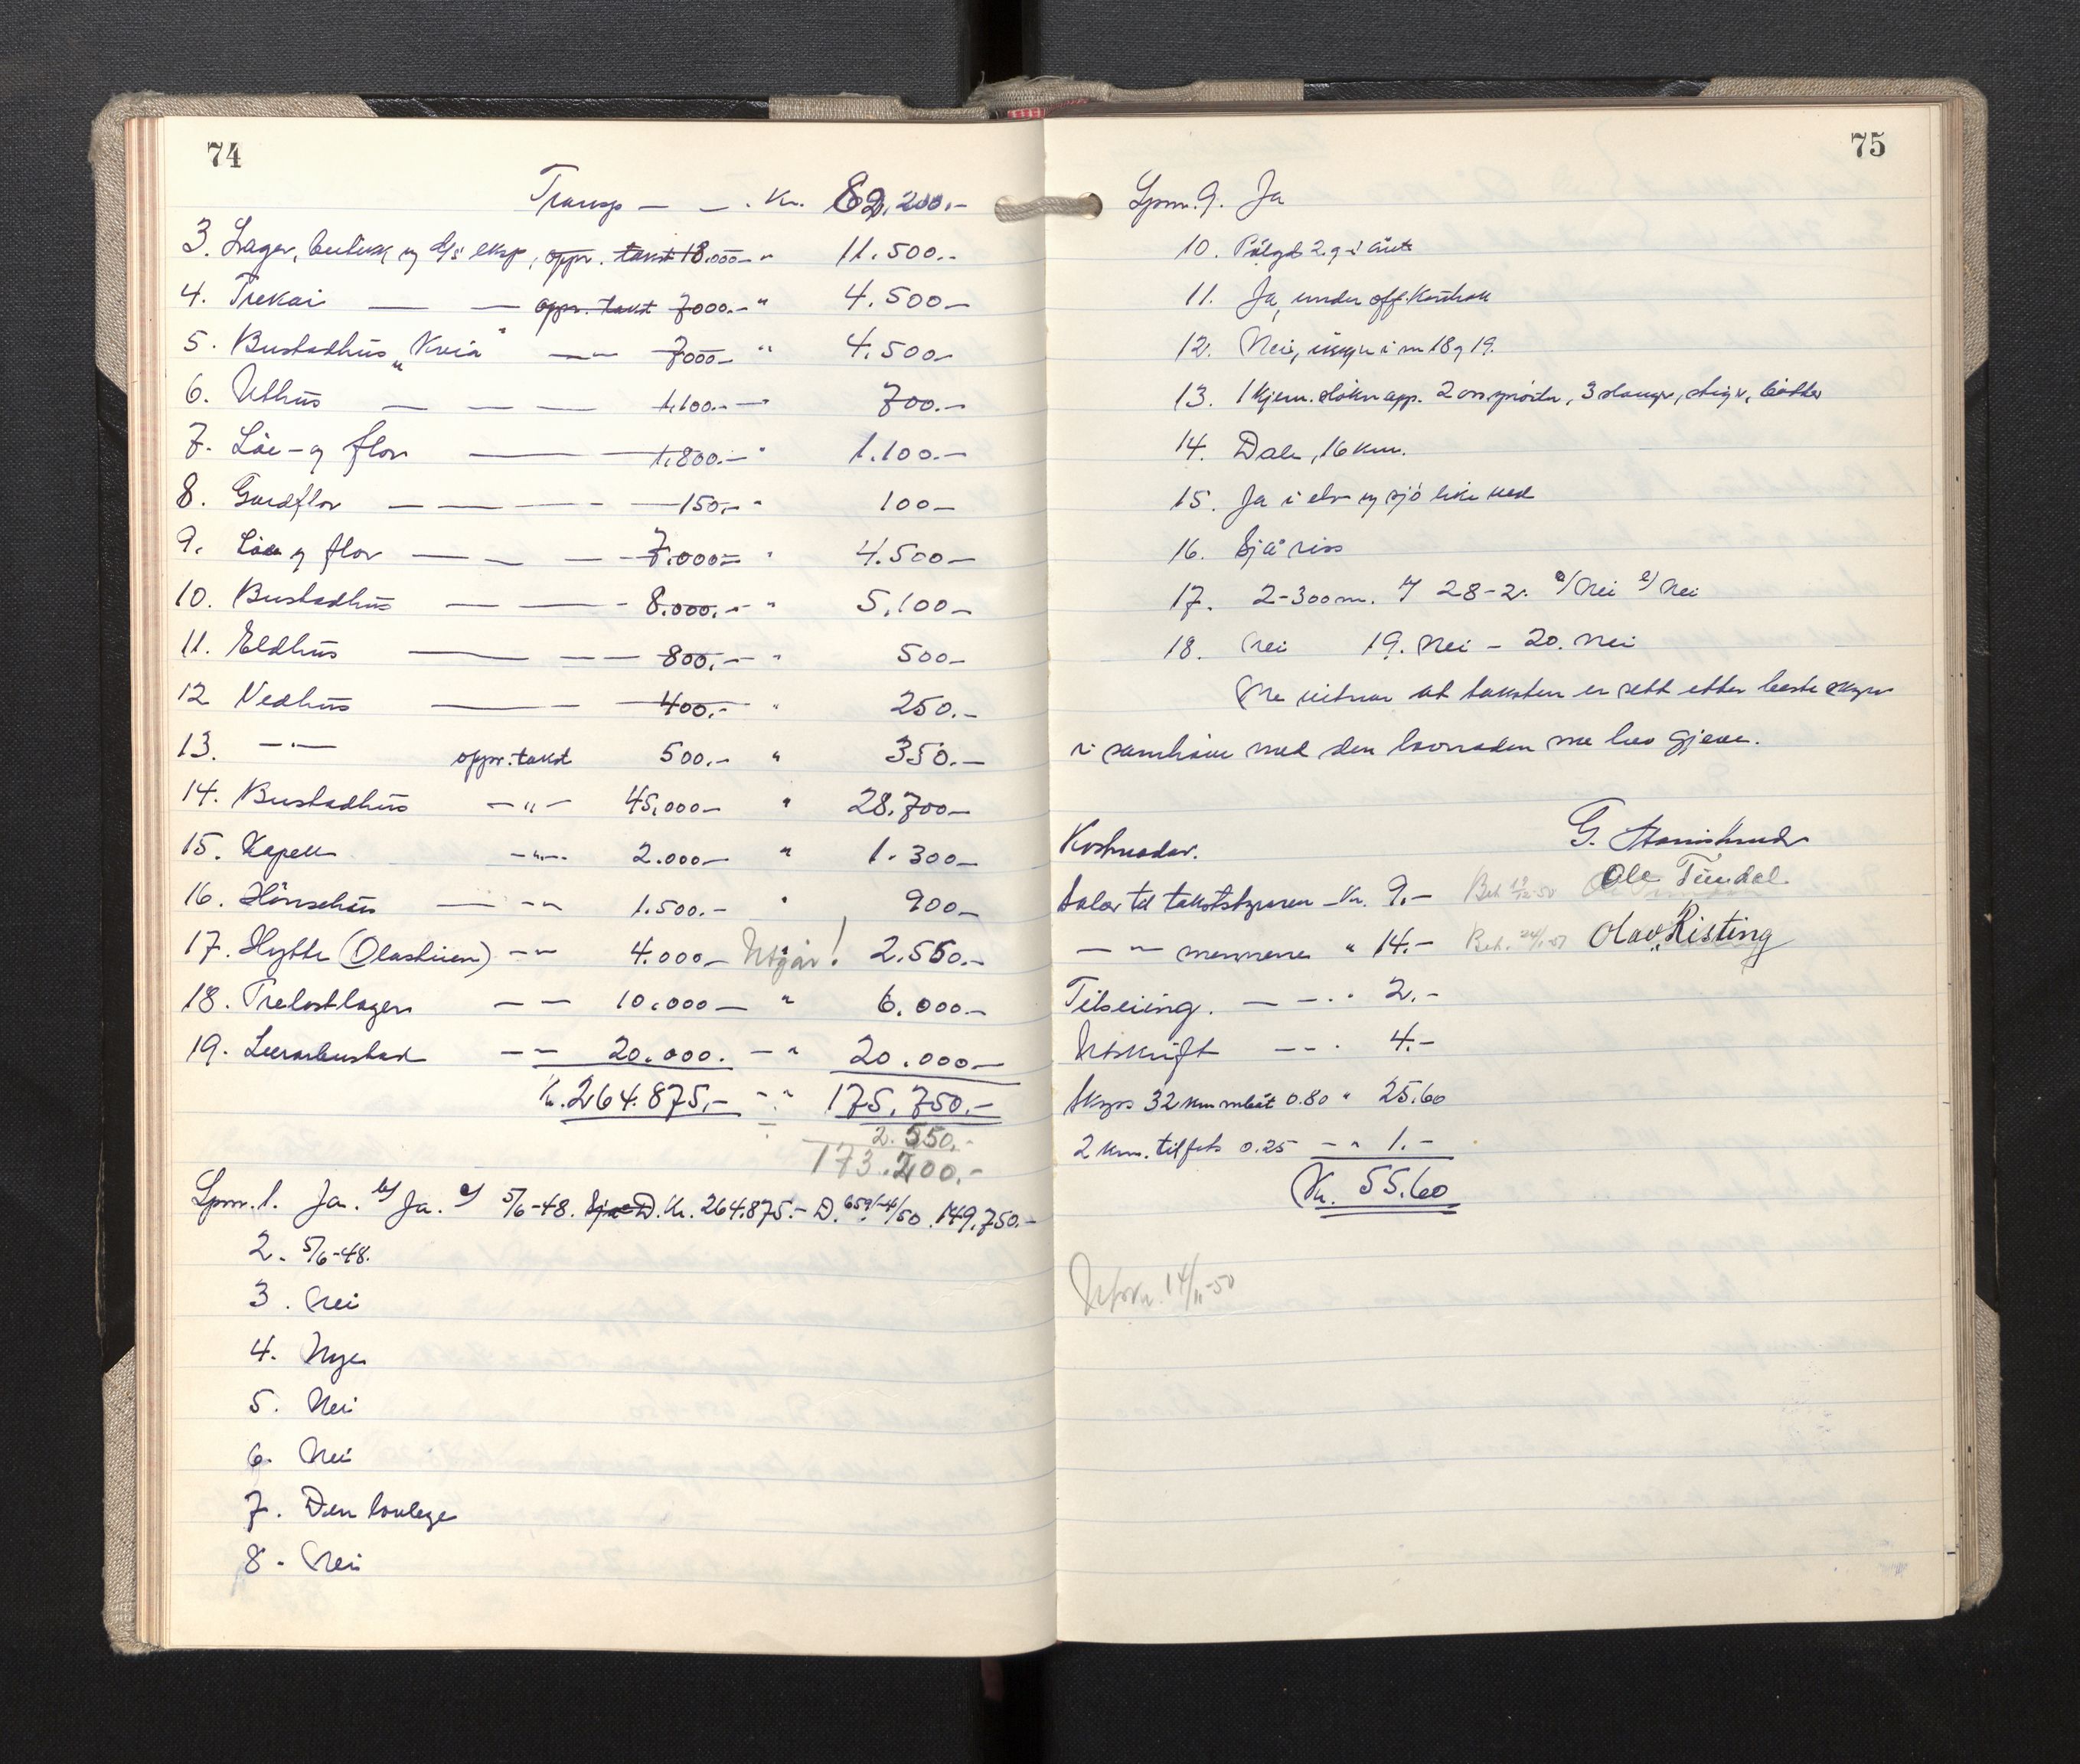 74
Transp — — . Kr. 82.200.-
3. Lager, butikk og d/s eksp, oppr. takst 18.000.- " 11.500.-
4. Trekai — — oppr. takst 7000.- " 4.500.-
5. Bustadhus „Kvia" — " — 7000.- " 4.500.-
6. Uthus — — — 1.100.- — " 700.-
7. Löe- og flor — — 1.800.- " 1.100.-
8. Gardflor — — — - — 150.- " 100.-
9. Löe og flor — — — 7.000.- " 4.500.-
10. Bustadhus — — - 8.000.- - " 5.100.-
11. Eldhus — — — 800.- - " 500.-
12 Vedhus — — 400.- " 250.-
13. — " — oppr. takst 500.- " 350.-
14. Bustadhus — " — 45.000.- " 28.700.-
15. Kapell — " — 2.000.- " 1.300.-
16. Hönsehus — — " — 1.500.- " 900.-
17. Hytte — " — 4.000.- Utgår! 2.550.-
18. Trelastlager — — 10.000.- " 6.000.-
19. Lærarbustad — — 20.000. - " 20.000.-
Kr. 264.875.- - " 175.750.-
2.550.-
173.200.-
Spm. 1. Ja. b/ Ja. c/ 5/6-48. D. Kr. 264.875.- D. 149.750.-
2. 5/6-48.
3. Nei
4. Nye
5. Nei
6. Nei
7. Den lovlege
8. Nei
75
Spm. 9. Ja
10. Pålagd 2 g. i året
11. Ja, under off. kontroll
12. Nei, ingen i nr 18 og 19.
13. 1 kjem. slökn app. 2 , 3 slanger, stiger, bötter
14. Dale, 16 km.
15. Ja i elv og sjö like ved
16. Sjå riss
17. 2-300 m. 28-2. Nei Nei
18. Nei 19. Nei - 20. Nei
Me vitnar at taksten er sett etter beste skyn
i samhøve med den lovnaden me hev gjeve.
Kostnader.
Salær til takststyraren - Kr. 9.- Bet.
Ole Tundal
— " — mennene " 14.- Bet. Olav Risting
Tilseiing. — — " 2.-
Utskrift — — . 4.-
Skyss 32 km mbåt 0.80 " 25.60
2 km. til fots 0.25 — " 1.-
Kr. 55.60
14/11-50